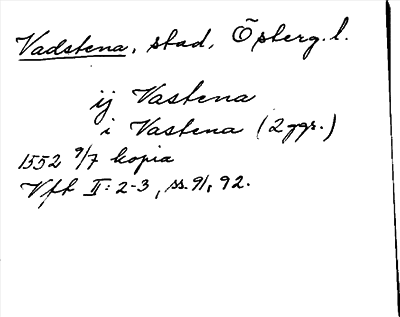 Vadstena, stad, Östberg. l.
ij Vastena
i Vastena (2 ggr.)
1552 9/7 kopia
Vfk II: 2-3, ss. 91, 92.